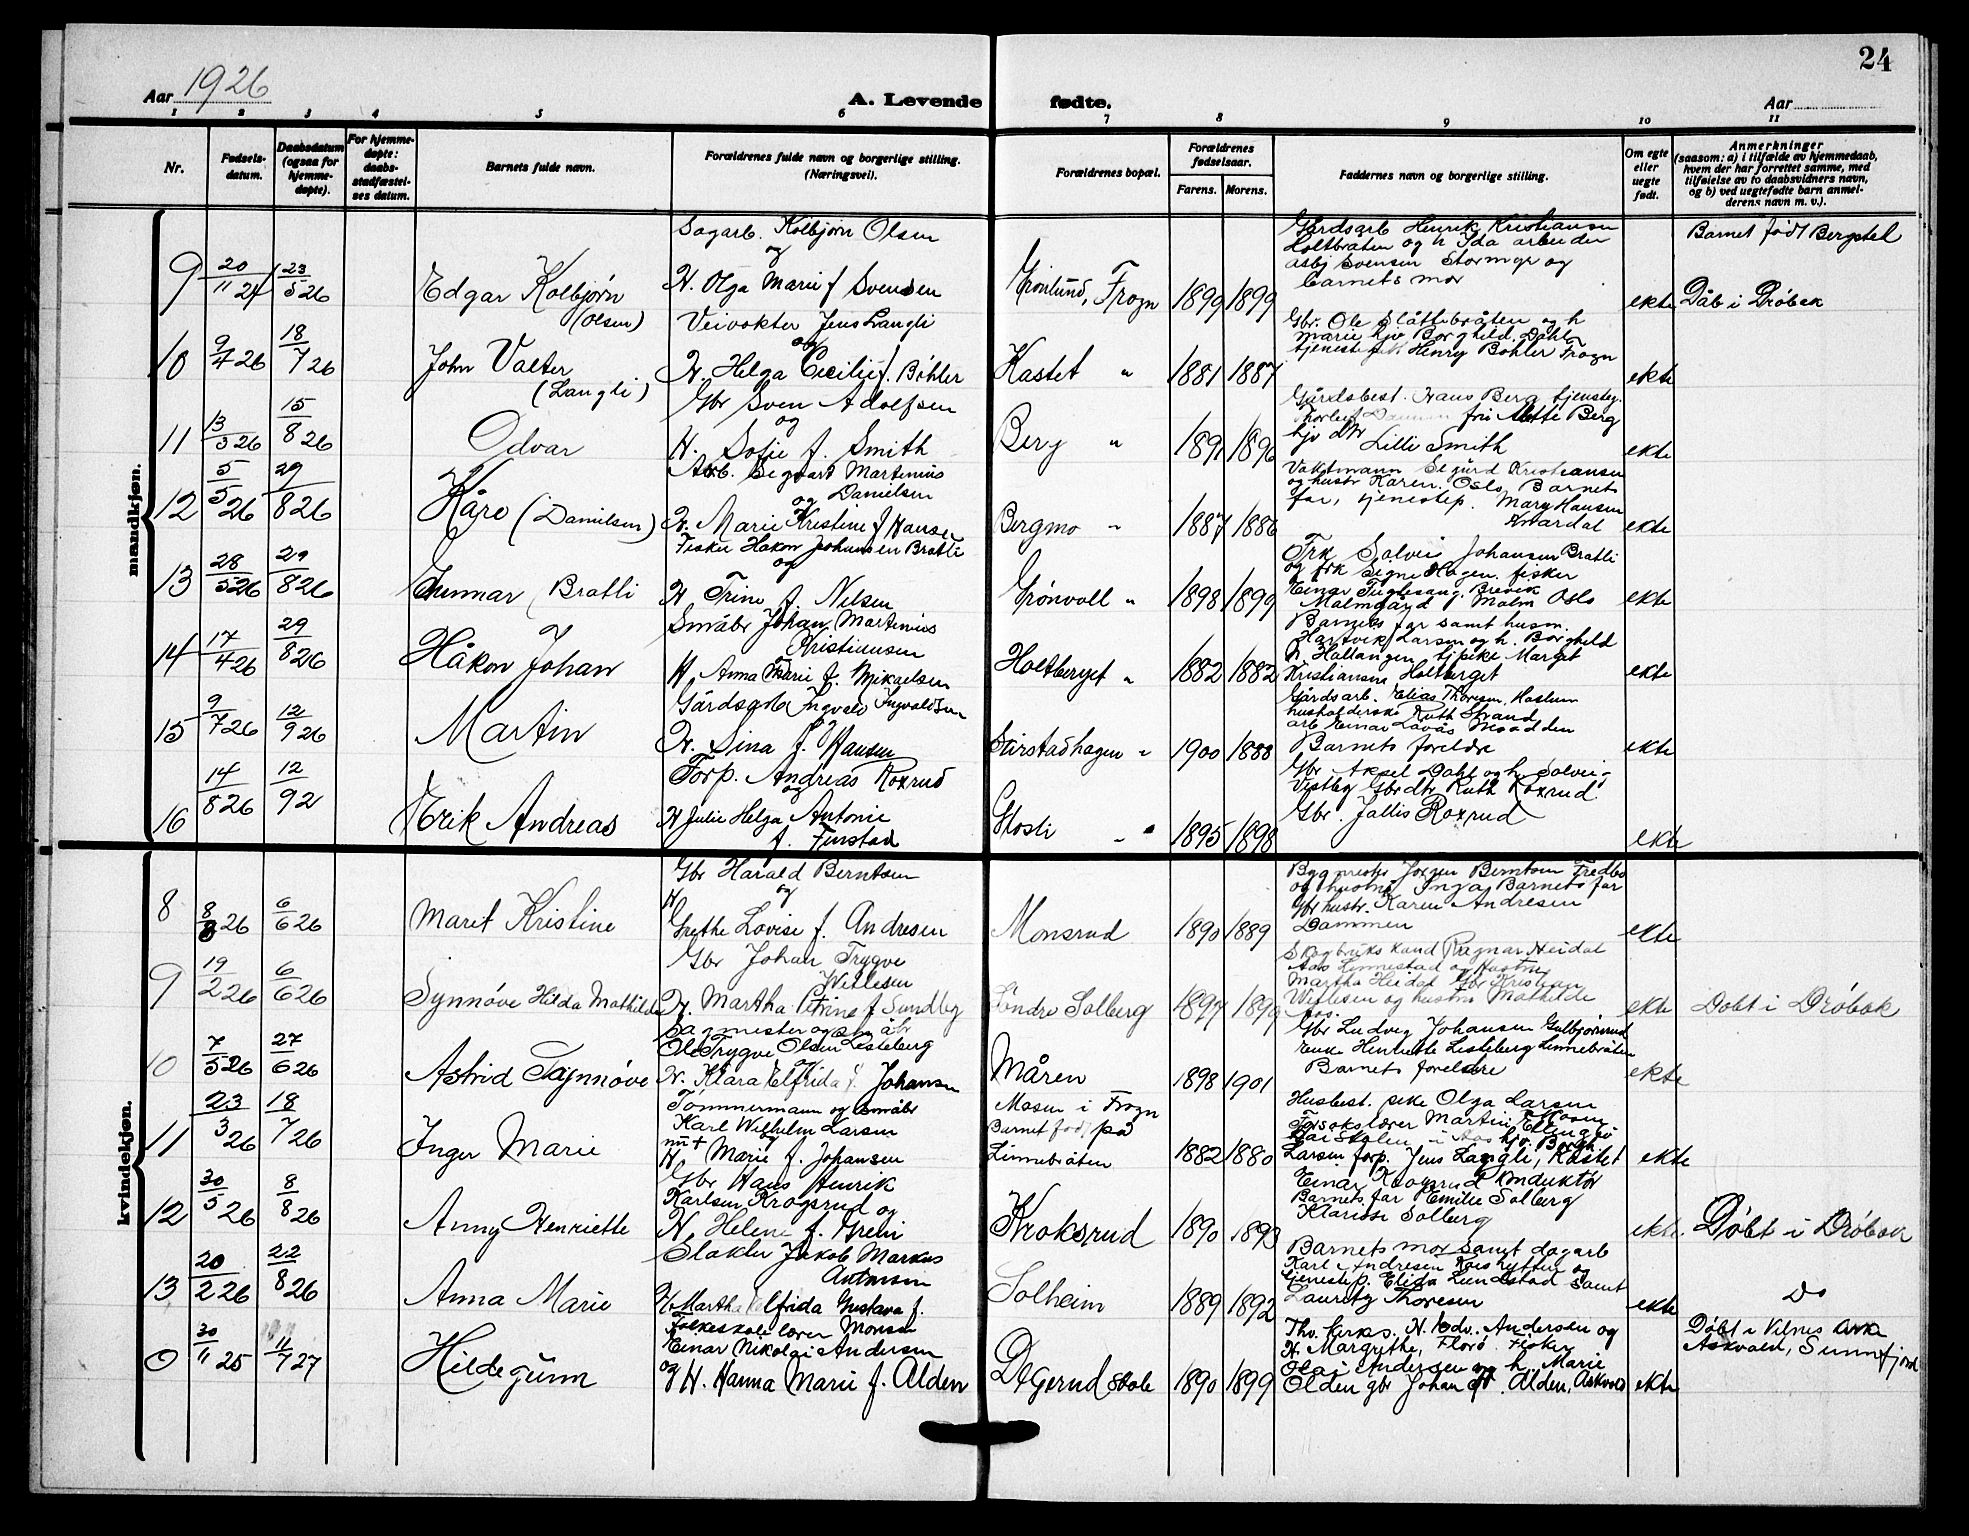 24
Aar 1926
A. Levende fødte.
Aar
1 2 3 4 5 6 7 8 9 10 11
Nr.
Fødsels-datum.
Daabsdatum (ogsaa for hjemme-døpte).
For hjemme-døpte: daabs-stadfæstel-ses datum.
Barnets fulde navn.
Forældrenes fulde navn og borgerlige stilling. (Næringsvei).
Forældrenes bopæl.
Forældrenes fødselsaar.
Farens. Morens.
Faddernes navn og borgerlige stilling.
Om egte eller uegte født.
Anmerkninger (saasom: a) i tilfælde av hjemmedaab, hvem der har forrettet samme, med tilføielse av to daabsvidners navn, og b) ved uegtefødte barn anmel-derens navn m. v.).
mandkjøn.
9 20/11 24 23/5 26
Edgar Kolbjørn (Olsen)
Sagarb. Kolbjørn Olsen
og
H. Olga Marie f Svendsen
Grønlund, Frogn
1899 1899
Gårdsarb Henrik Kristiansen
Holtbråten og h Ida arbeider
Asbj Svensen Stormyr og
barnets mor
ekte
Barnet født Bergstel
Dåb i Drøbak
10 9/4 26 18/7 26
John Valter
(Langli)
Veivokter Jens Langli
og
H. Helga Cecilie f. Bøhler
Kastet "
1881 1887
Gbr. Ole Slåttebråten og h
Marie hjv Borghild Dahl
Henry Bøhler Frogn
ekte
11 13/3 26 15/8 26
Odvar
Gbr Sven Adolfsen
og
H. Sofie f. Smith
Berg "
1891 1896
Gårdsbest. Hans Berg tjenesteg.
Thorleif fru Mette Berg
hjv dtr Lilli Smith
ekte
12 5/5 26 29/8 26
Kåre (Danielsen)
Arb. Segvart Martinius
og Danielsen
H. Marie Kristine f Hansen
Bergmo "
1887 1886
Vaktmann Sigurd Kristiansen
og hustr Karen. Oslo, Barnets
far, tjenestep. Mary Hansen
ekte
13 28/5 26 29/8 26
Gunnar (Bratli
Fisker Håkon Johansen Bratli
og
H Trine f. Nilsen
Grønvoll "
1898 1899
Frk Solvei Johansen Bratli
og frk Signe Hagen. fisker
Einar Fuglesang, Brevik
Malmgård Malm Oslo
ekte
14 17/4 26 29/8 26
Håkon Johan
Småbr Johan Martinius
Kristiansen
H. Anna Marie f. Mikaelsen
Holtberget "
1882 1882
Barnets far samt husm.
Hartvik Larsen og h. Borghild
Hallangen tjpike Margit
Kristiansen Holtberget
ekte
15 9/7 26 12/9 26
Martin
Gårdsarb Ingvald Ingvaldsen
H. Lina f. Hansen
"
1900 1888
Gårdsarb. Elias Thoresen, Haslum
husholderske Ruth Strand
arb Einar
Barnets foreldre
ekte
16 14/8 26 12/9 2
Erik Andreas
Forp. Andreas Roxrud
og
H Julie Helga Antonie
f. Finstad
Glosli "
1895 1898
Gbr Aksel Dahl og h. Solvei
Vestby Gbrdtr Ruth Roxrud
Gbr. Jallis Roxrud
ekte
kvindekjøn.
8 8/ 26 6/6 26
Marit Kristine
Gbr Harald Berntsen
og
H
Grethe Lovise f. Andresen
Monsrud
1890 1889
Byggmester Jørgen Berntsen Fredbo
og hustru Inga Barnets far
Gbr hustr. Karen Andresen
Dammen
ekte
9 19/2 26 6/6 26
Synnøve Hilda Mathilde
Gbr Johan Trygve
Willesen
H. Martha Petrine f Sundby
Søndre Solberg
1897 1899
Skogbruks kand Ragnar Heidal
Aas Linnestad og Hustru
Martha Heidal Gbr Kristian
Willesen og hustru Mathilde
Aas.
ekte
Døbt i Drøbak
10 7/5 26 27/6 26
Astrid Synnøve
Sagmester og småbr
Ole Trygve Olsen Lesteberg
og
H. Klara Elfrida f. Johansen
Måren
1898 1901
Gbr Ludvig Johansen Gulbjørnrud
Enke Henriette Lesteberg Linnebråten
Barnets foreldre
ekte
11 23/3 26 18/7 26
Inger Marie
Tømmermann og småbr
Karl Wilhelm Larsen
H Marie f. Johansen
Mosen i Frogn
Barnet født på
Linnebråten
1882 1880
Husbest. pike Olga Larsen
Martin
Larsen forp. Jens Langli, Kastet
ekte
12 30/5 26 8/8 26
Anny Henriette
Gbr Hans Henrik
Karlsen Krogsrud og
H. Helene f. Hveli
Kroksrud
1890 1893
Einar Krogsrud Konduktør
Barnets far Emilie Solberg
Klarisse Solberg
ekte.
Døbt i Drøbak
13 20/2 26 22/8 26
Anna Marie
Slakter Jakob Markus
Antonsen
H. Martha Elfrida Gustava f.
Solheim
1889 1892
Barnets mor samt dagarb
Karl Andresen Korshytten og
tjenestep. Elida Lundstad samt
Lauritz Thoresen
ekte
Do
0 30/11 25 11/7 27
Hildegunn
Folkeskole lærer Monsen
Einar Nikolai Andersen
og H. Hanna Marie f. Alden
Degerud skole
1890 1899
Thv. kirks. N. Edv. Andersen og
H Margrethe, Florø. Fisker
Ola Andersen og h. Marie
Olden gbr Johan A. Alden, Askvold
ekte
Døbt i Vilnes
Askvold, Sunnfjord